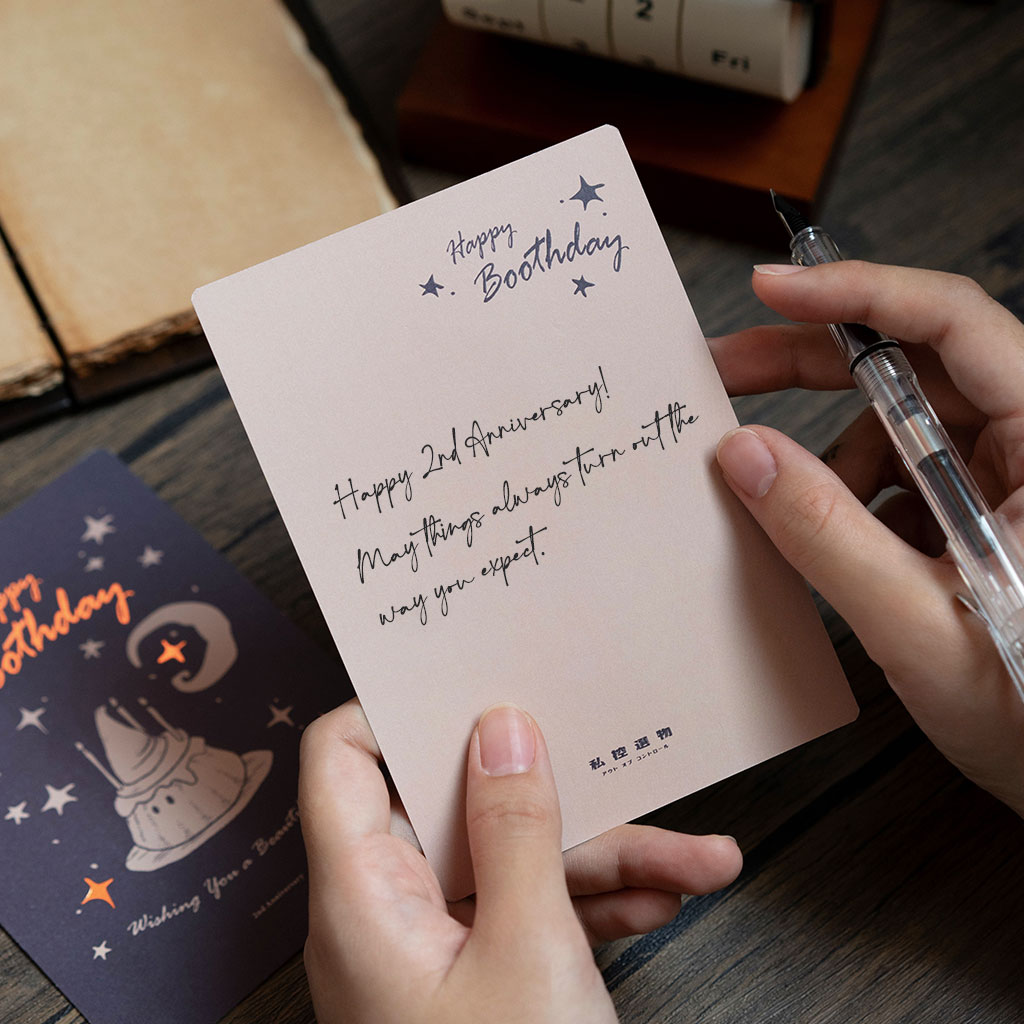 Sept
2
Fri
Happy
Boothday
Happy 2nd Anniversary!
May things always turn out the
way you expect.
私控選物
アウト オブ コントロール
Wishing You a
2nd Anniversary